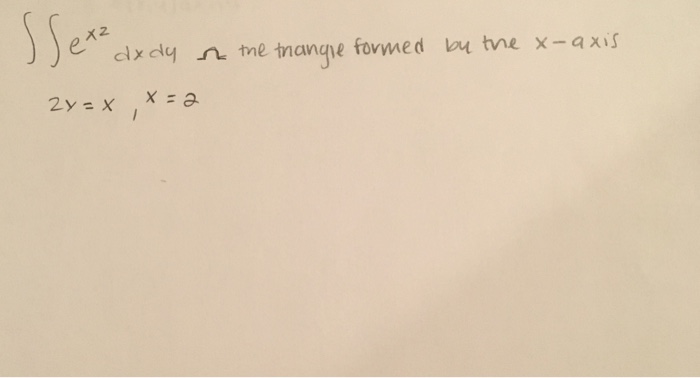 ∫∫e^x2 dxdy Ω the triangle formed by the x-axis
2y = x , x = 2